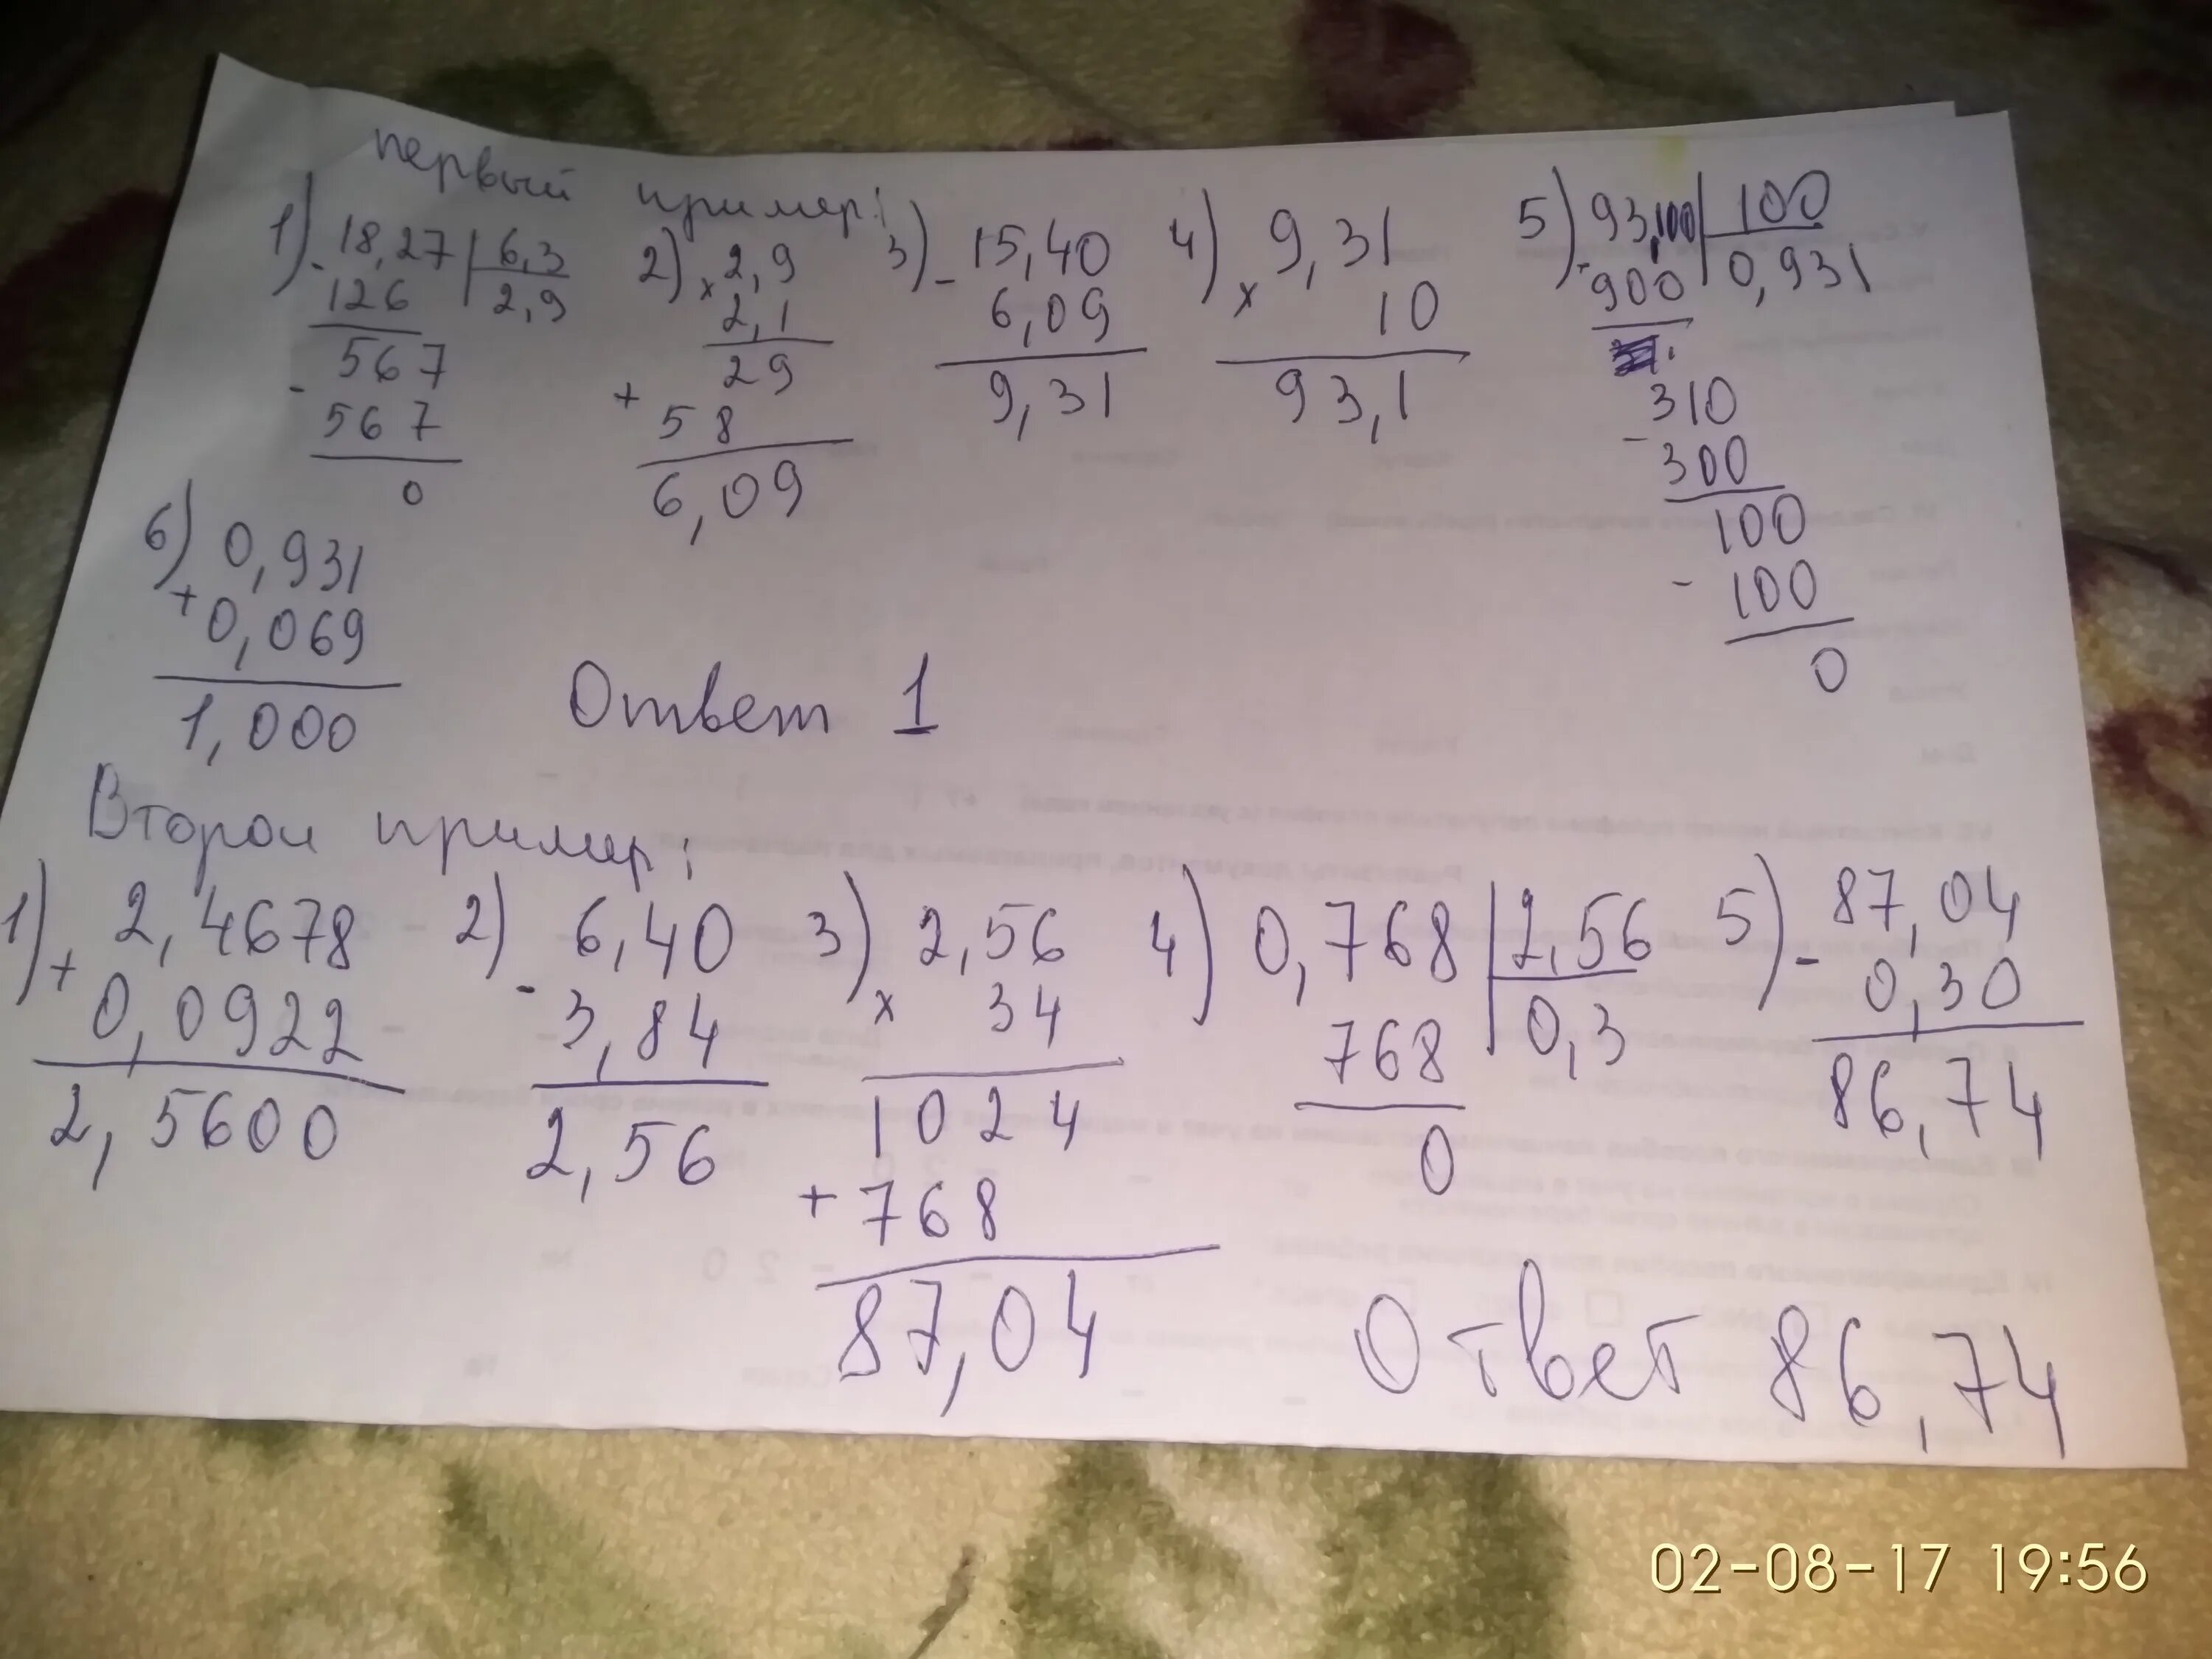 первый пример:
1) 18,27 | 6,3
- 126 | 2,9
567
- 567
0
2) 2,9
× 2,1
29
+ 58
6,09
3) 15,40
- 6,09
9,31
4) 9,31
× 10
93,1
5) 93,100 | 100
- 900 | 0,931
310
- 300
100
- 100
0
6) 0,931
+ 0,069
1,000
Ответ 1
Второй пример:
1) 2,4678
+ 0,0922
2,5600
2) 6,40
- 3,84
2,56
3) 2,56
× 34
1024
+ 768
87,04
4) 0,768 | 2,56
768 | 0,3
0
5) 87,04
- 0,30
86,74
Ответ 86,74
02-08-17 19:56